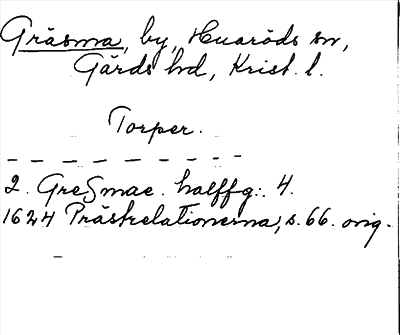 Gräsma, by, Huaröds sn,
Gärds hd, Krist. l.
Torper.
2. GreSmae. halffg: 4.
1624 Prästrelationerna, s. 66. orig.